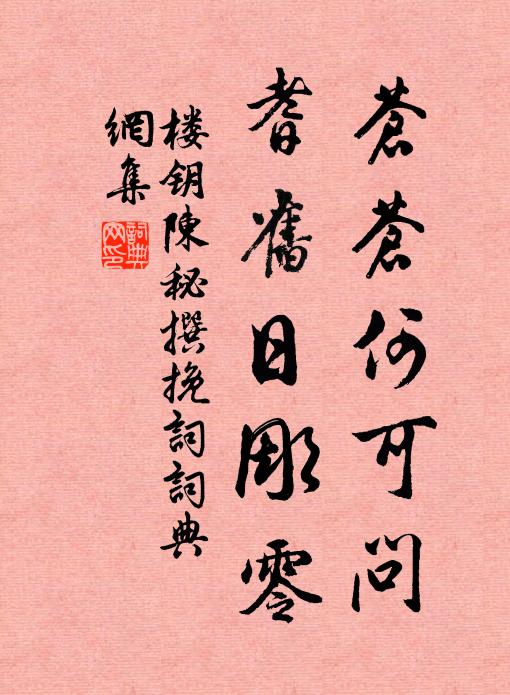 蒼蒼何可問
耆舊日彫零
楼钥陳秘撰挽詞詞典
網集
詞典
网印